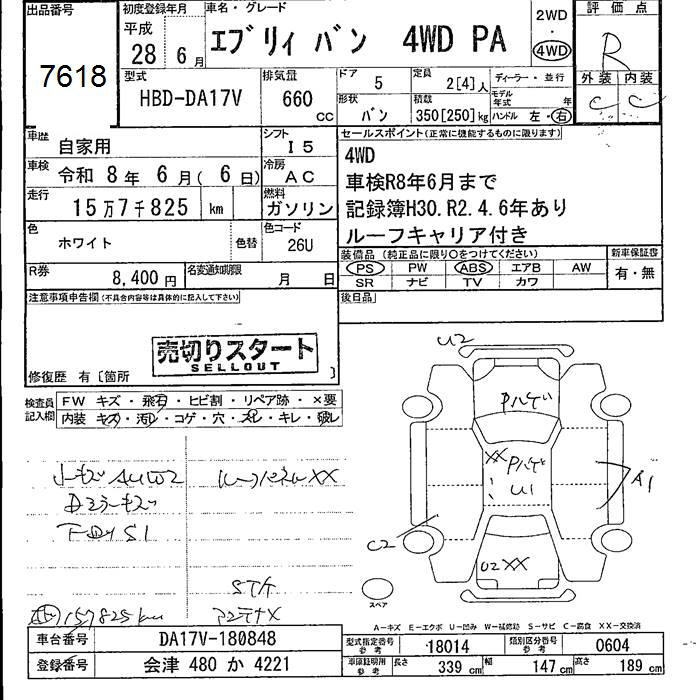 出品番号
7618
初度登録年月
平成
28年 6月
車名・グレード
エブリィ バン 4WD PA
2WD
4WD
評価点
R
外装 内装
C C
型式
HBD-DA17V
排気量
660 cc
ドア
5
定員
2[4]人
形状
バン
積載
350[250]kg
ディーラー・並行
モデル年式 年
ハンドル 左・右
車歴
自家用
シフト
I5
車検
令和 8年 6月( 6日)
冷房
AC
走行
15万7千825 km
燃料
ガソリン
色
ホワイト
色替
色コード
26U
R券
8,400円
名変通知期限
月 日
セールスポイント(正常に機能するものに限ります)
4WD
車検R8年6月まで
記録簿H30.R2.4.6年あり
ルーフキャリア付き
装備品(純正品に限り○をつけてください)
PS PW ABS エアB AW
SR ナビ TV カワ
新車保証書
有・無
後日品
注意事項申告欄(不具合内容等は具体的に記入して下さい)
売切りスタート
SELLOUT
修復歴 有〔箇所 〕
検査員記入欄
FW キズ・飛石・ヒビ割・リペア跡・×要
内装 キズ・汚レ・コゲ・穴・スレ・キレ・破レ
ルーフパネルXX
157825km
U2
Pハゲ
XX Pハゲ
U1
A1
C2
U2XX
スペア
A-キズ E-エクボ U-凹み W-補修跡 S-サビ C-腐食 XX-交換済
車台番号
DA17V-180848
登録番号
会津 480 か 4221
型式指定番号
参考
18014
類別区分番号
参考
0604
車庫証明用
参考
長さ 339cm 幅 147cm 高さ 189cm